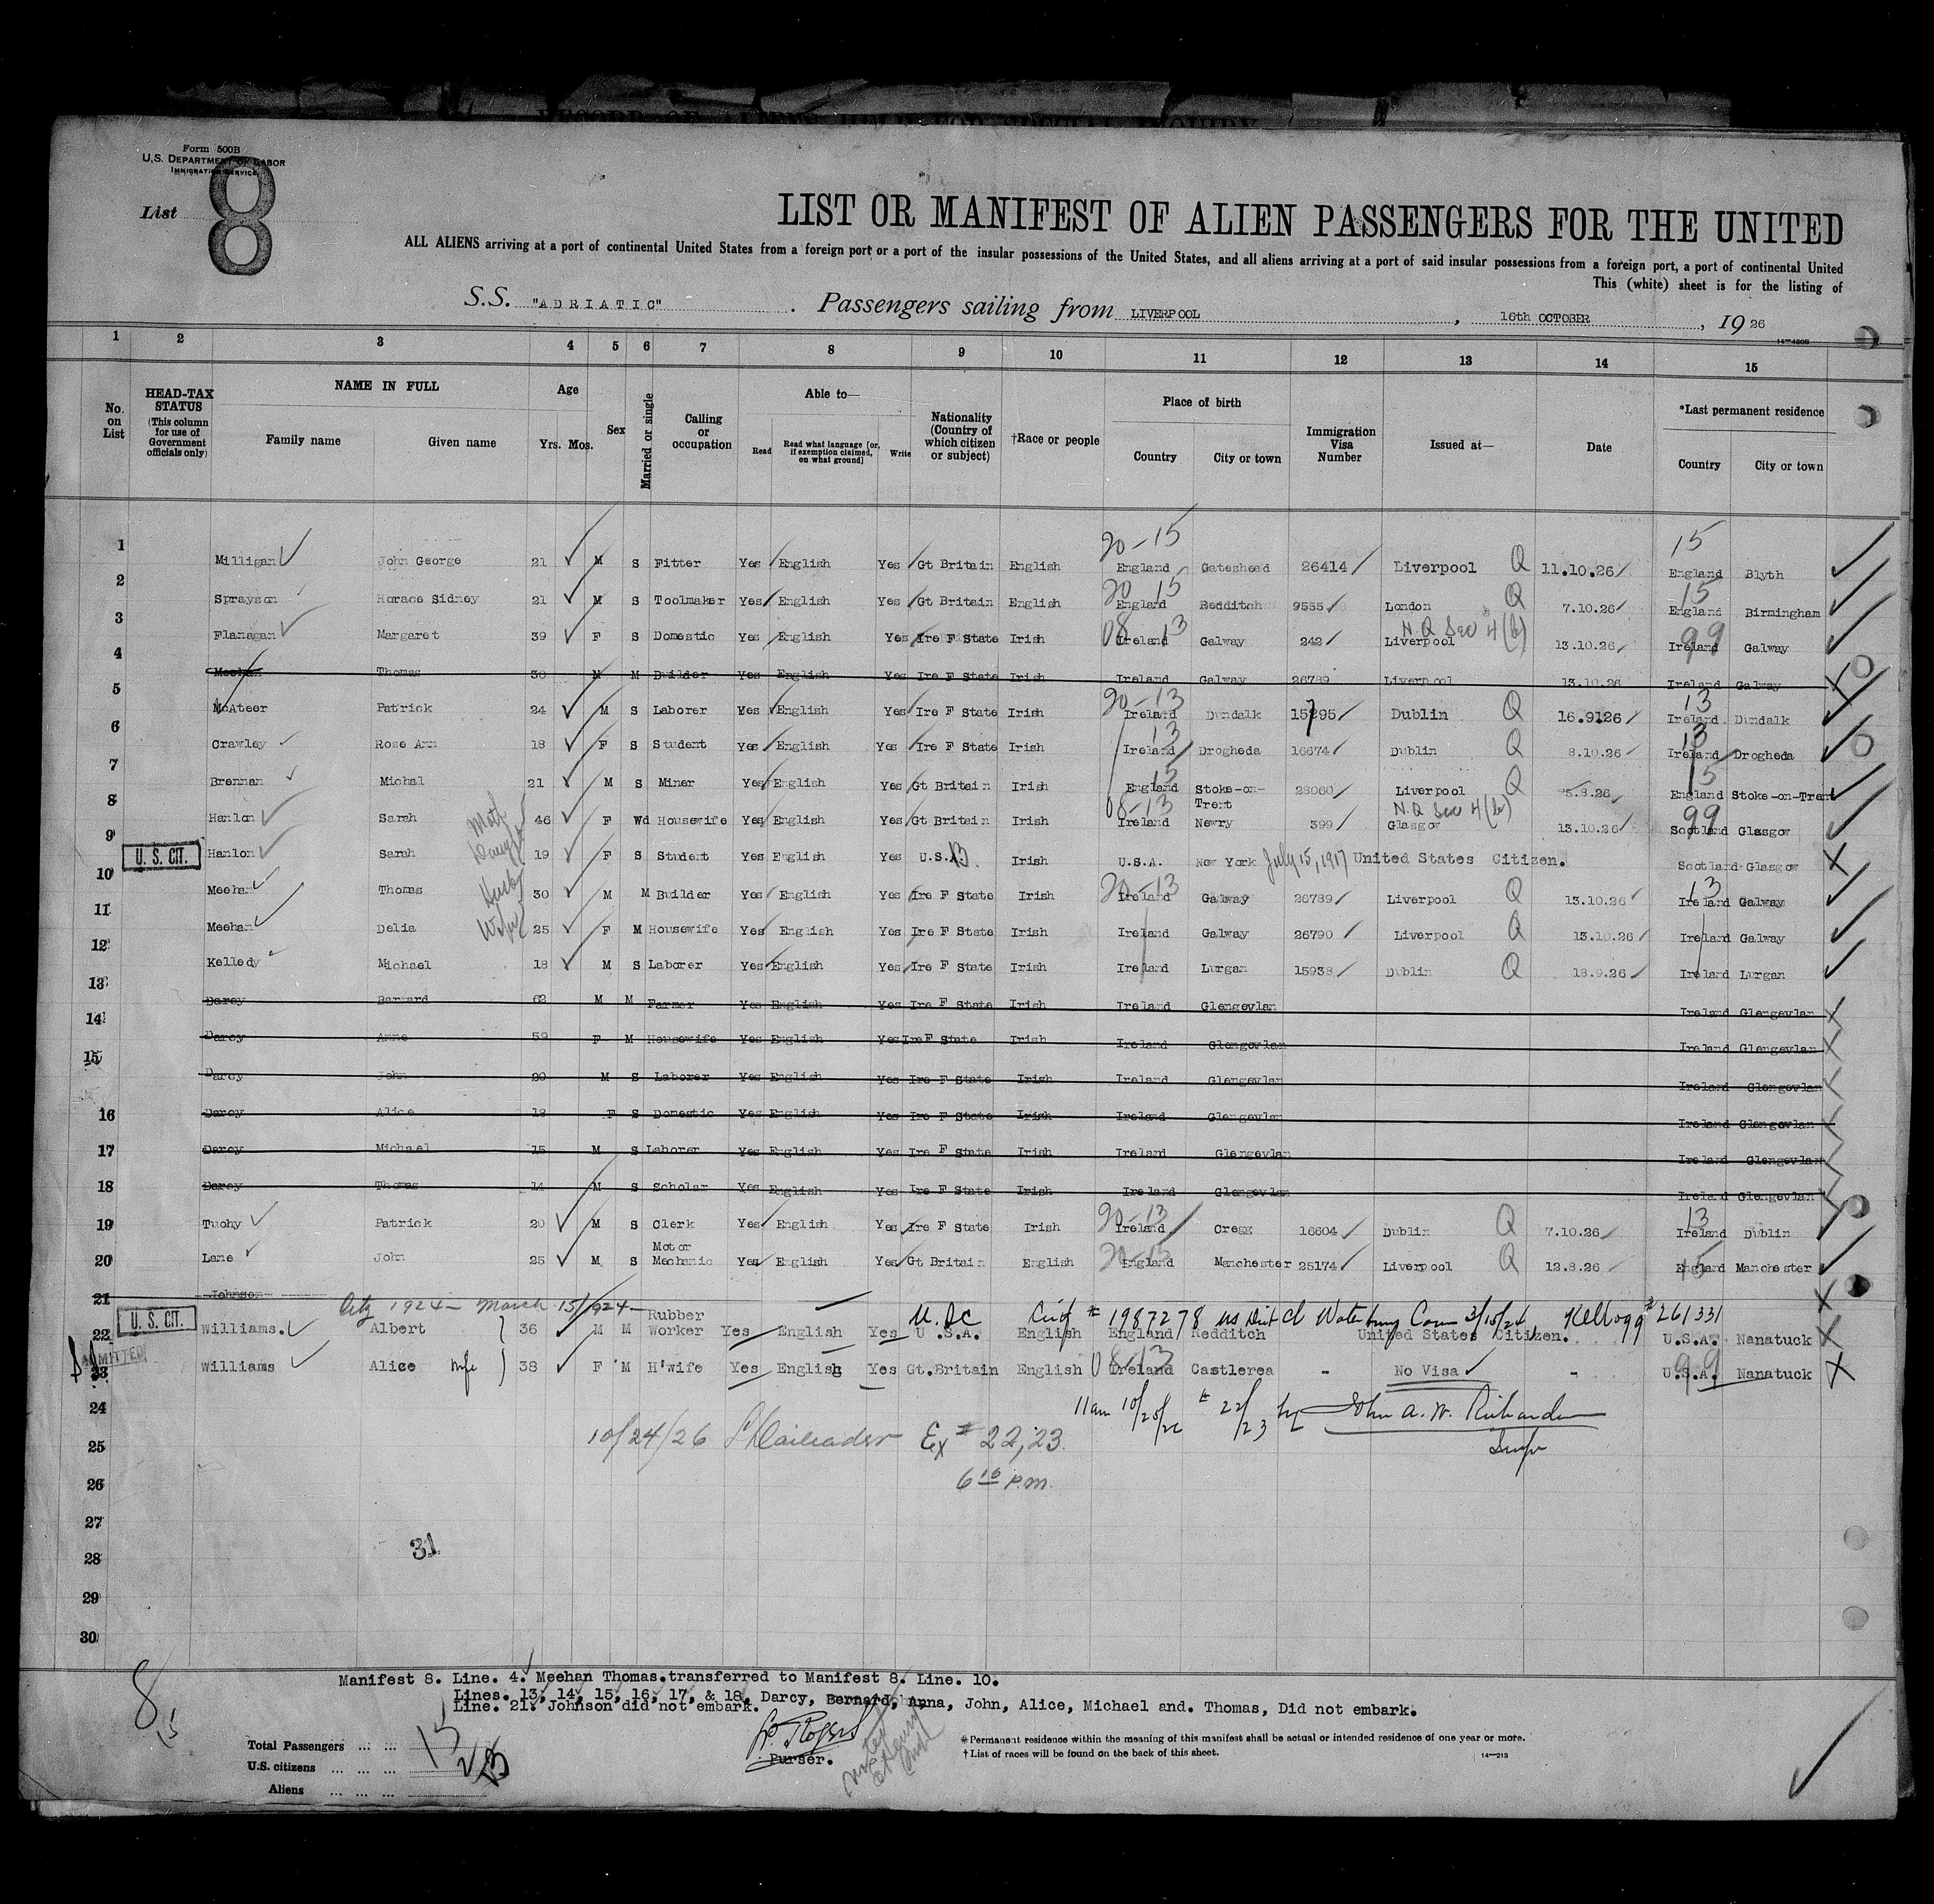 Form 500B
U.S. DEPARTMENT OF LABOR
IMMIGRATION SERVICE
List 8
LIST OR MANIFEST OF ALIEN PASSENGERS FOR THE UNITED
ALL ALIENS arriving at a port of continental United States from a foreign port or a port of the insular possessions of the United States, and all aliens arriving at a port of said insular possessions from a foreign port, a port of continental United
This (white) sheet is for the listing of
S.S. "ADRIATIC". Passengers sailing from LIVERPOOL, 16th OCTOBER, 1926
14—480B
1 2 3 4 5 6 7 8 9 10 11 12 13 14 15
No. on List
HEAD-TAX STATUS (This column for use of Government officials only)
NAME IN FULL
Family name Given name
Age
Yrs. Mos.
Sex
Married or single
Calling or occupation
Able to—
Read Read what language (or, if exemption claimed, on what ground) Write
Nationality (Country of which citizen or subject)
†Race or people
Place of birth
Country City or town
Immigration Visa Number
Issued at—
Date
*Last permanent residence
Country City or town
20-15 15
1 Milligan John George 21 M S Fitter Yes English Yes Gt Britain English England Gateshead 26414 Liverpool Q 11.10.26 England Blyth
20 15 15
2 Sprayson Horace Sidney 21 M S Toolmaker Yes English Yes Gt Britain English England Redditch 9555 London Q 7.10.26 England Birmingham
08 13 N.Q Sec 4(b) 99
3 Flanagan Margaret 39 F S Domestic Yes English Yes Ire F State Irish Ireland Galway 242 Liverpool 13.10.26 Ireland Galway
4 Meehan Thomas 30 M M Builder Yes English Yes Ire F State Irish Ireland Galway 26789 Liverpool 13.10.26 Ireland Galway
20-13 13
5 McAteer Patrick 24 M S Laborer Yes English Yes Ire F State Irish Ireland Dundalk 15795 Dublin Q 16.9.26 Ireland Dundalk
13 13
6 Crawley Rose Ann 18 F S Student Yes English Yes Ire F State Irish Ireland Drogheda 16674 Dublin Q 8.10.26 Ireland Drogheda
13 15
7 Brennan Michal 21 M S Miner Yes English Yes Gt Britain Irish England Stoke-on-Trent 28060 Liverpool Q 5.8.26 England Stoke-on-Trent
08-13 N.Q Sec 4(b) 99
8 Hanlon Sarah Moth 46 F Wd Housewife Yes English Yes Gt Britain Irish Ireland Newry 399 Glasgow 13.10.26 Scotland Glasgow
9 U. S. CIT. Hanlon Sarah Daught 19 F S Student Yes English Yes U.S.A. Irish U.S.A. New York July 15, 1917 United States Citizen. Scotland Glasgow
20-13 13
10 Meehan Thomas Husb 30 M M Builder Yes English Yes Ire F State Irish Ireland Galway 26789 Liverpool Q 13.10.26 Ireland Galway
11 Meehan Delia Wife 25 F M Housewife Yes English Yes Ire F State Irish Ireland Galway 26790 Liverpool Q 13.10.26 Ireland Galway
12 Kelledy Michael 18 M S Laborer Yes English Yes Ire F State Irish Ireland Lurgan 15938 Dublin Q 18.9.26 Ireland Lurgan
13 Darcy Bernard 62 M M Farmer Yes English Yes Ire F State Irish Ireland Glengevlan Ireland Glengevlan
14 Darcy Anne 59 F M Housewife Yes English Yes Ire F State Irish Ireland Glengevlan Ireland Glengevlan
15 Darcy John 20 M S Laborer Yes English Yes Ire F State Irish Ireland Glengevlan Ireland Glengevlan
16 Darcy Alice 18 F S Domestic Yes English Yes Ire F State Irish Ireland Glengevlan Ireland Glengevlan
17 Darcy Michael 15 M S Laborer Yes English Yes Ire F State Irish Ireland Glengevlan Ireland Glengevlan
18 Darcy Thomas 14 M S Scholar Yes English Yes Ire F State Irish Ireland Glengevlan Ireland Glengevlan
20-13 13
19 Tuohy Patrick 20 M S Clerk Yes English Yes Ire F State Irish Ireland Cregg 16604 Dublin Q 7.10.26 Ireland Dublin
20 Lane John 25 M S Motor Mechanic Yes English Yes Gt Britain English England Manchester 25174 Liverpool Q 12.8.26 England Manchester
21 Johnson
Ctz 1924 - March 15/1924 - U.S.C # 1987278 US Dist Ct Waterbury Conn 3/15/24 Kellogg # 261331
22 U. S. CIT. Williams. Albert 36 M M Rubber Worker Yes English Yes U.S.A. English England Redditch United States Citizen. U.S.A. Nanatuck
08-13 99
23 ADMITTED Williams Alice wife 38 F M H'wife Yes English Yes Gt.Britain English Ireland Castlerea - No Visa - U.S.A. Nanatuck
24 11am 10/25/26 # 22/23 by John A. W. Richardson
25 10/24/26 Ex # 22, 23. Insp
26 6 15 P.M.
27
28 31
29
30
Manifest 8. Line. 4. Meehan Thomas. transferred to Manifest 8. Line. 10.
Lines. 13, 14, 15, 16, 17, & 18, Darcy, Bernard, Anna, John, Alice, Michael and. Thomas, Did not embark.
Line. 21. Johnson did not embark.
Rogers
Purser.
8
Total Passengers ... ... 15
U.S. citizens ... ... ... 2
Aliens ... ... ... 13
* Permanent residence within the meaning of this manifest shall be actual or intended residence of one year or more.
† List of races will be found on the back of this sheet.
14—213